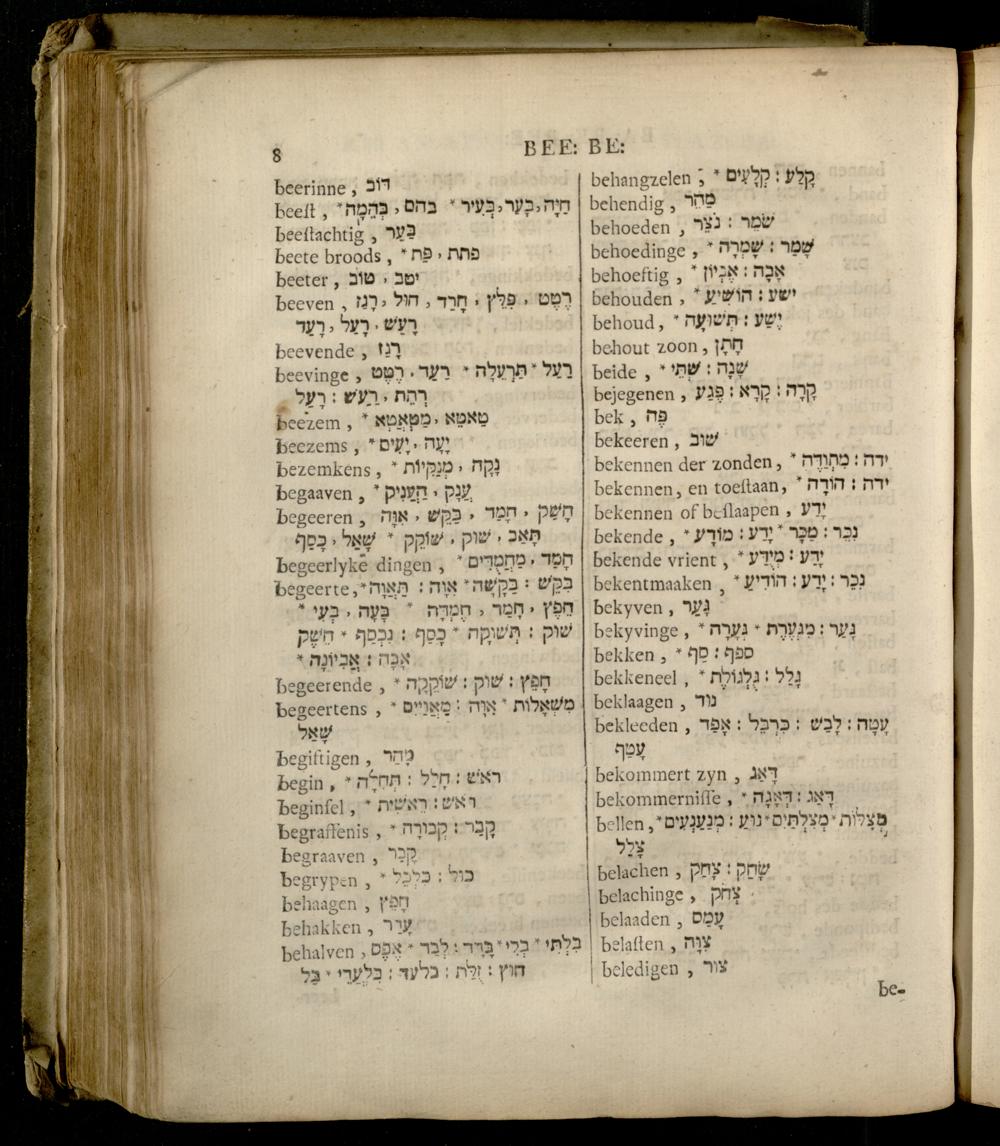 8
BEE: BE:
beerinne, דוֹב
beeſt, *חַיָה, בָּעַר, בְּעִיר * בהם, בְּהֵמָה
beeſtachtig, בָּעַר
beete broods, * פתת, פַּת
beeter, יטב, טוֹב
beeven, רֶטֶט, פִּלֵּץ, חָרַד, חוּל, רָגַז
רָעַשׁ, רָעַל, רָעַד
beevende, רָגַז
beevinge, רַעַל * תַּרְעֵלָה * רַעַד, רֶטֶט
רְתֵת, רַעַשׁ : רָעַל
beezem, * טַאטֵא, מַטְאֲטֵא
beezems, * יָעָה, יָעִים
bezemkens, * נָקָה, מְנַקִיוֹת
begaaven, * עָנָק, הַעֲנִיק
begeeren, חָשַׁק, חָמַד, בַּקֵשׁ, אִוָּה
תָּאַב, שׁוּק, שׁוֹקֵק * שָׁאַל, כָּסַף
begeerlyke dingen, * חָמַד, מַחֲמַדִּים
begeerte, * בִּקֵּשׁ : בַּקָּשָׁה * אִוָּה : תַּאֲוָה
חֵפֶץ, חָמַד, חֶמְדָּה * בָּעָה, בְּעִי *
שׁוּק : תְּשׁוּקָה * כָּסַף : נִכְסַף * חֵשֶׁק
אָבָה : אֲבִיּוֹנָה *
begeerende, * חָפֵץ : שׁוּק : שׁוֹקֵקָה
begeertens, * מִשְׁאָלוֹת * אִוָּה : מַאֲוַיִּים
שָׁאַל
begiftigen, מָהַר
begin, * רֹאשׁ : חָלַל : תְּחִלָּה
beginſel, * ראשׁ : רֵאשִׁית
begraffenis, * קָבַר : קְבוּרָה
begraaven, קָבַר
begrypen, * כּוּל : כִּלְכֵּל
behaagen, חָפֵץ
behakken, עָדַר
behalven, בִּלְתִּי * בְּלִי * בָּדַד : לְבַד * אֶפֶס
חוּץ : זֻלַת : בלעד : בִּלְעֲדֵי * בַּל
behangzelen, * קָלַע : קְלָעִים
behendig, מָהֵר
behoeden, שֹׁמֵר : נֹצֵר
behoedinge, * שָׁמַר : שָׁמְרָה
behoeftig, * אָבָה : אֶבְיוֹן
behouden, * ישע : הוֹשִׁיעַ
behoud, * יֶשַׁע : תְּשׁוּעָה
behout zoon, חָתָן
beide, * שָׁנָה : שְׁתֵּי
bejegenen, קָרָה : קָרָא : פָּגַע
bek, פֶּה
bekeeren, שׁוּב
bekennen der zonden, * ידה : מִתְוַדֶּה
bekennen, en toeſtaan, * ידה : הוֹדָה
bekennen of beſlaapen, יָדַע
bekende, * נכר : מַכָּר * יָדַע : מוֹדָע
bekende vrient, * יָדַע : מְיֻדָּע
bekentmaaken, * נכר : יָדַע : הוֹדִיעַ
bekyven, גָּעַר
bekyvinge, * גָּעַר : מִגְעֶרֶת * גְּעָרָה
bekken, * ספף : סַף
bekkeneel, * גָּלַל : גֻּלְגּוֹלֶת
beklaagen, נוּד
bekleeden, עָטָה : לָבַשׁ : כִּרְבֵּל : אָפַד
עָטַף
bekommert zyn, דָּאַג
bekommerniſſe, * דָּאַג : דְּאָגָה
bellen, * מְצִלּוֹת * מְצִלְתַּיִם * נוּעַ : מְנַעַנְעִים
צָלַל
belachen, שָׂחַק : צָחַק
belachinge, צְחֹק
belaaden, עָמַס
belaſten, צִוָּה
beledigen, צוּר
be-